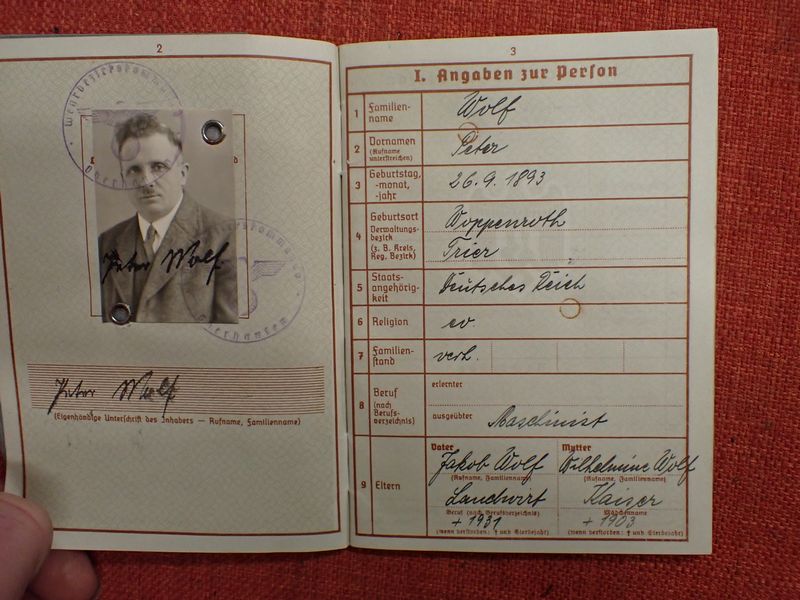 2
Wehrbezirkskommando
Oberhausen
Peter Wolf
Oberhausen
Peter Wolf
(Eigenhändige Unterschrift des Inhabers — Rufname, Familienname)
3
I. Angaben zur Person
1 Familien-
name
Wolf
2 Vornamen
(Rufname
unterstreichen)
Peter
3 Geburtstag,
-monat,
-jahr
26.9.1893
4 Geburtsort
Verwaltungs-
bezirk
(z. B. Kreis,
Reg. Bezirk)
Woppenroth
Trier
5 Staats-
angehörig-
keit
Deutsches Reich
6 Religion
ev
7 Familien-
stand
verh.
8 Beruf
(nach
Berufs-
verzeichnis)
erlernter
ausgeübter
Maschinist
9 Eltern
Vater
Jakob Wolf
(Rufname, Familienname)
Landwirt
Beruf (nach Berufsverzeichnis)
+ 1931
(wenn verstorben: † und Sterbejahr)
Mutter
Wilhelmine Wolf
(Rufname, Familienname)
Kaiser
Mädchenname
+ 1903
(wenn verstorben: † und Sterbejahr)